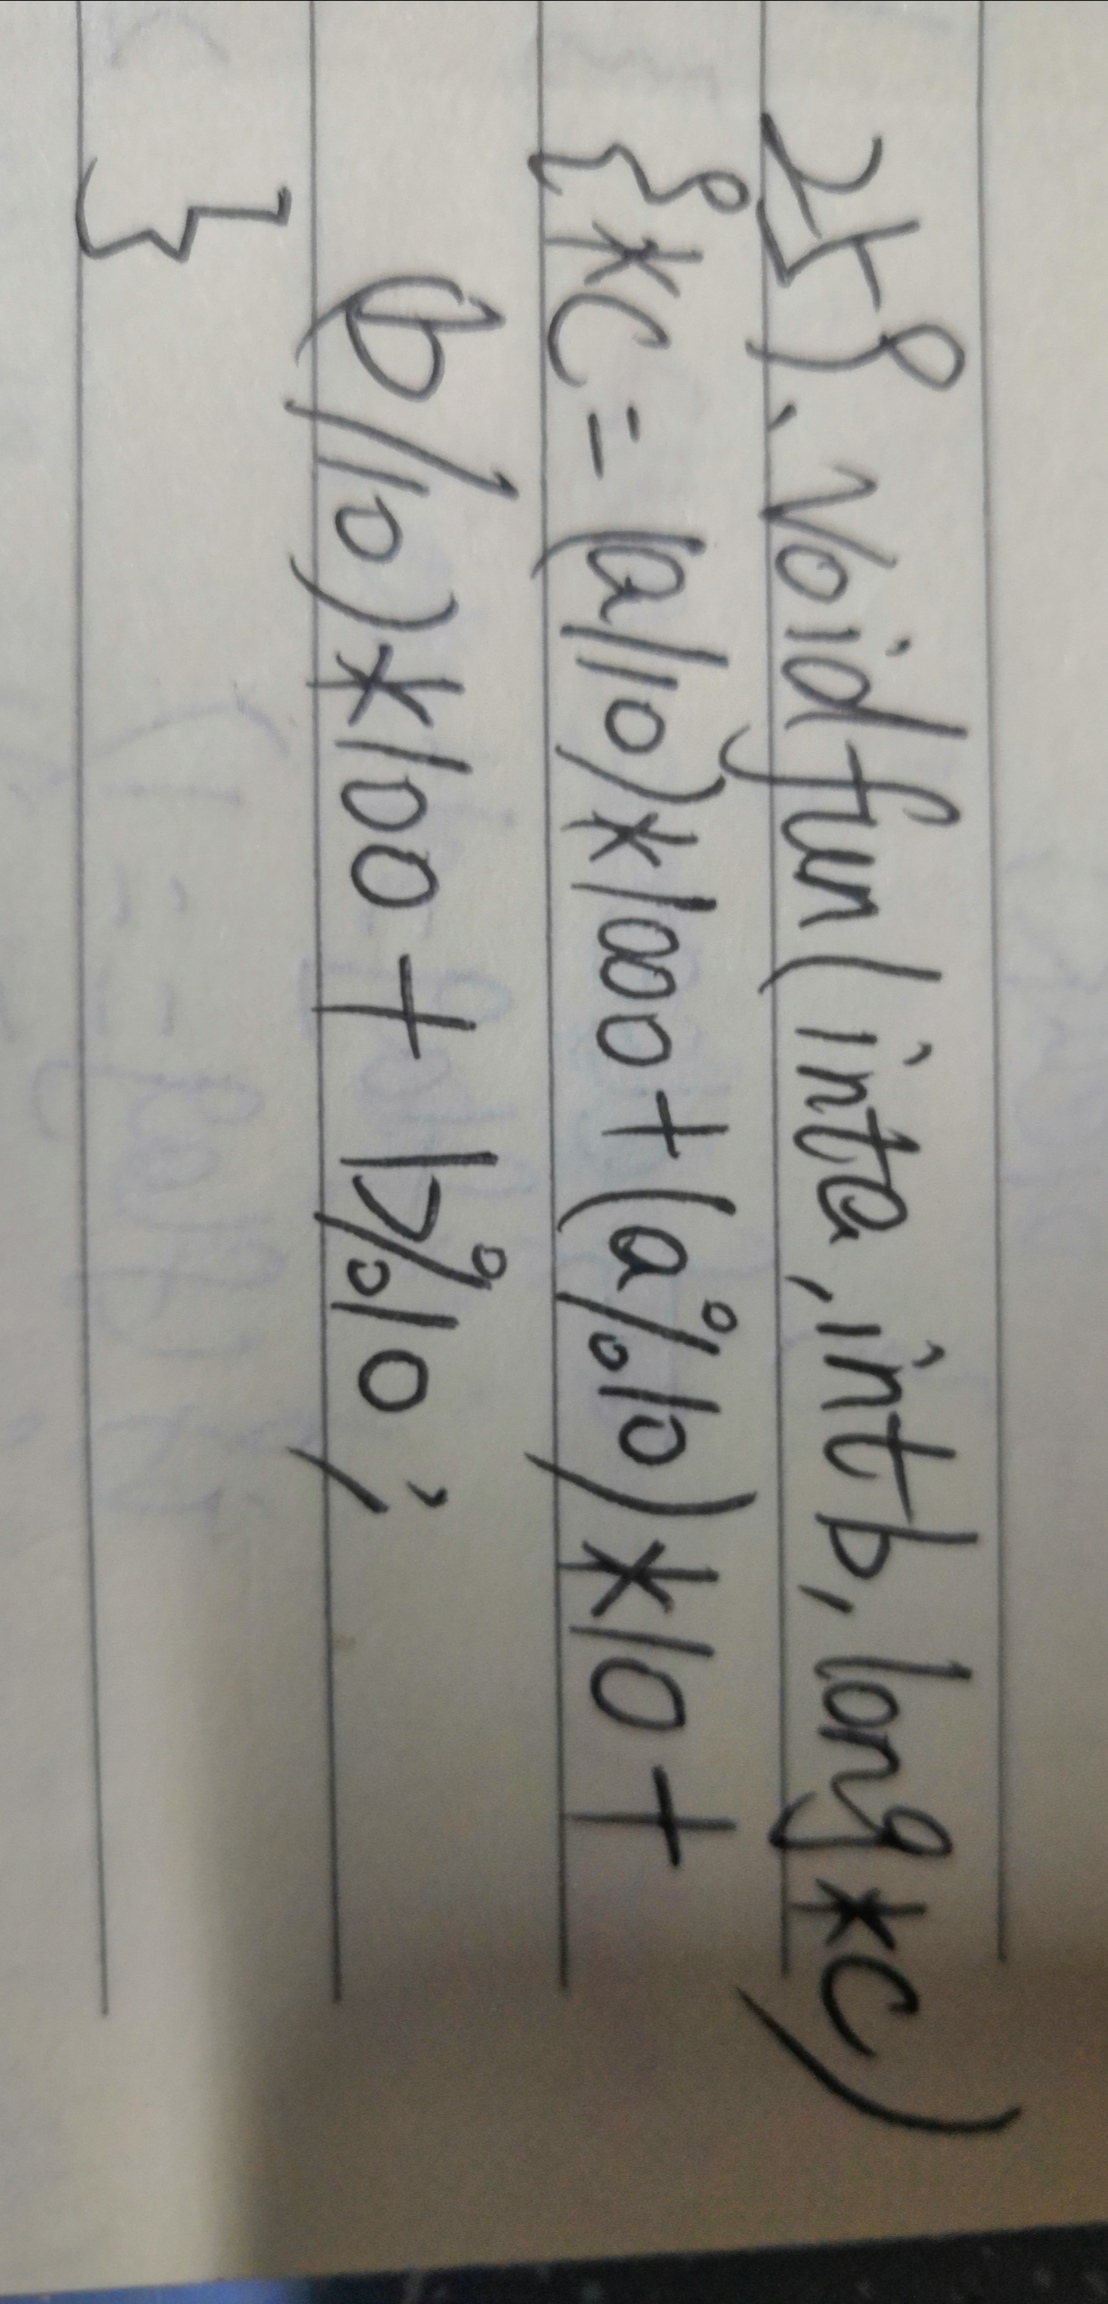 258、void fun(int a, int b, long *c)
{*c=(a/10)*1000+(a%10)*10+
(b/10)*100+b%10;
}